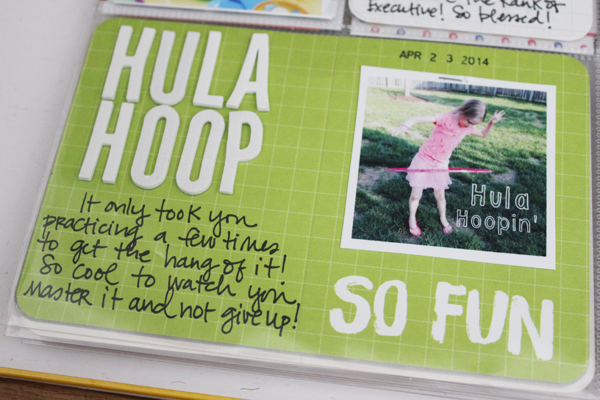 the Rank of
Executive! So blessed!
APR 2 3 2014
HULA
HOOP
Hula
Hoopin'
It only took you
practicing a few times
to get the hang of it!
So cool to watch you
master it and not give up!
SO FUN